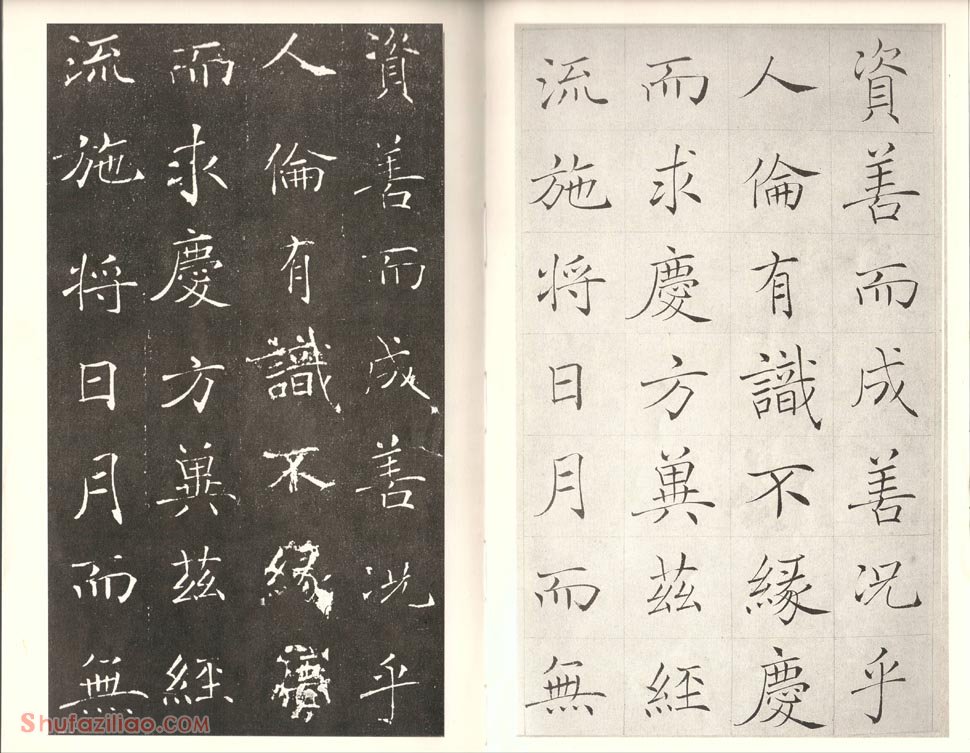 資善而成善况乎
人倫有識不緣慶
而求慶方冀兹經
流施将日月而無
資善而成善况乎
人倫有識不緣慶
而求慶方冀兹經
流施将日月而無
Shufaziliao.COM